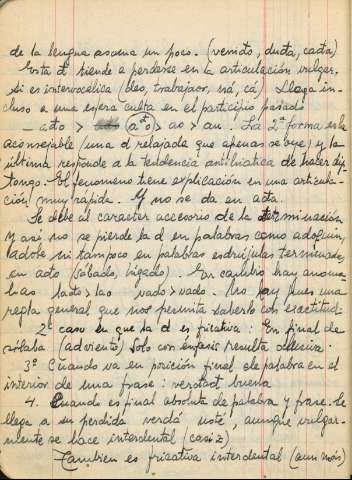 de la lengua asoma un poco. (venido, duda, cada)
Esta d tiende a perderse en la articulación vulgar,
si es intervocálica (deo, trabajaor, ná, cá) Llega in-
cluso a una esfera culta en el participio pasado
- ado > (aᵈo) > ao > au. La 2ª forma es la
aconsejable (una d relajada que apenas se oye) y la
última responde a la tendencia antihiática de hacer dip
tongo. El fenómeno tiene explicación en una articula-
ción muy rápida. Y no se da en acta.
Se debe al caracter accesorio de la terminación
Y asi no se pierde la d en palabras como adoquín,
ladole ni tampoco en palabras esdrújulas terminadas
en ado (sábado, hígado). En cambio hay anoma-
lías lado > lao vado > vado. No hay pues una
regla general que nos permita saberlo con exactitud.
2º caso en que la d es fricativa: En final de
sílaba (adviento) Solo con énfasis resulta oclusiva.
3º Cuando va en posición final de palabra en el
interior de una frase: verdad buena
4. Cuando es final absoluta de palabra y frase. Se
llega a su perdida verdá, usté, aunque vulgar-
mente se hace interdental (casi z)
También es fricativa interdental (aun más)